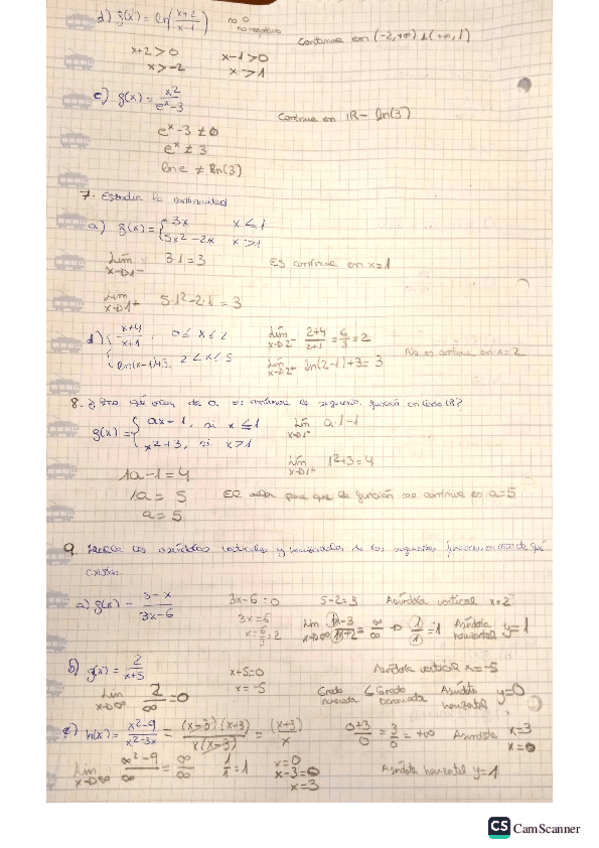 d) g(x) = ln(x+2/x-1) no 0
Continua en (-2,+∞) (+∞,1)
x+2>0 x-1>0
x>-2 x>1
c) g(x) = x²/eˣ-3
Continua en IR - ln(3)
eˣ-3 ≠ 0
eˣ ≠ 3
ln e ≠ ln(3)
7. Estudia la continuidad
a) g(x) = { 3x x ≤ 1
5x²-2x x>1
Lim x→1⁻ 3·1=3 Es continua en x=1
Lim x→1⁺ 5·1²-2·1 = 3
d) { x+4/x+1, 0 ≤ x ≤ 2 Lim x→2⁻ 2+4/2+1 = 6/3 = 2
ln(x-1)+3, 2<x≤5 Lim x→2⁺ ln(2-1)+3 = 3 No es continua en x=2
8. valor de a es continua la siguiente función en todo IR?
g(x) = { ax-1, si x ≤ 1 Lim x→1⁻ a·1-1
x²+3, si x>1 Lim x→1⁺ 1²+3=4
1a-1=4
1a = 5 El valor para que la función sea continua es a=5
a = 5
9. las asíntotas verticales y horizontales de las siguientes funciones, en caso de que
existan.
a) g(x) = 3-x/3x-6 3x-6=0 5-2=3 Asíntota vertical x=2
3x=6
x=6/3=2 Lim x→∞ = ∞/∞ → 1/1 = 1 Asíntota horizontal y=1
b) g(x) = 2/x+5 x+5=0 Asíntota vertical x=-5
x=-5
Lim x→∞ 2/∞ = 0 Grado < Grado Asíntota horizontal y=0
h(x) = x²-9/x²-3x = (x-3)(x+3)/x(x-3) = (x+3)/x 0+3/0 = 3/0 = +∞ Asíntota x=3
x=0
Lim x→∞ ∞²-9/∞ = ∞/∞ 1/1 = 1 x=0 Asíntota horizontal y=1
x-3=0
x=3
CS CamScanner